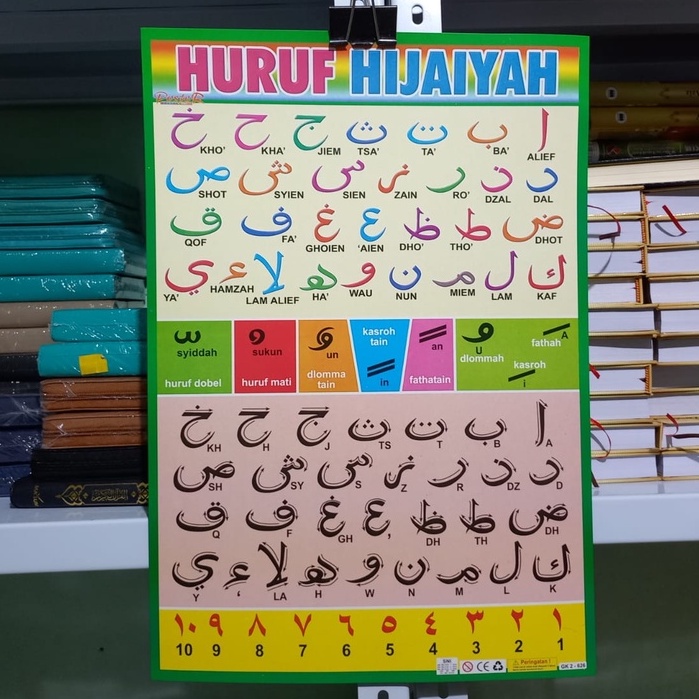 HURUF HIJAIYAH
ا ب ت ث ج ح خ
ALIEF BA' TA' TSA' JIEM KHA' KHO'
د ذ ر ز س ش ص
DAL DZAL RO' ZAIN SIEN SYIEN SHOT
ض ط ظ ع غ ف ق
DHOT THO' DHO' 'AIEN GHOIEN FA' QOF
ك ل م ن و ه لا ء ي
KAF LAM MIEM NUN WAU HA' LAM ALIEF HAMZAH YA'
syiddah
huruf dobel
sukun
huruf mati
un
dlomma tain
kasroh tain
in
an
fathatain
U
dlommah
fathah A
kasroh
i
ا ب ت ث ج ح خ
A B T TS J H KH
د ذ ر ز س ش ص
D DZ R Z S SY SH
ض ط ظ ع غ ف ق
DH TH DH , GH F Q
ك ل م ن و ه لا ء ي
K L M N W H LA ‘ Y
١ ٢ ٣ ٤ ٥ ٦ ٧ ٨ ٩ ١٠
1 2 3 4 5 6 7 8 9 10
SNI
CE
Peringatan !
GK 2 - 626